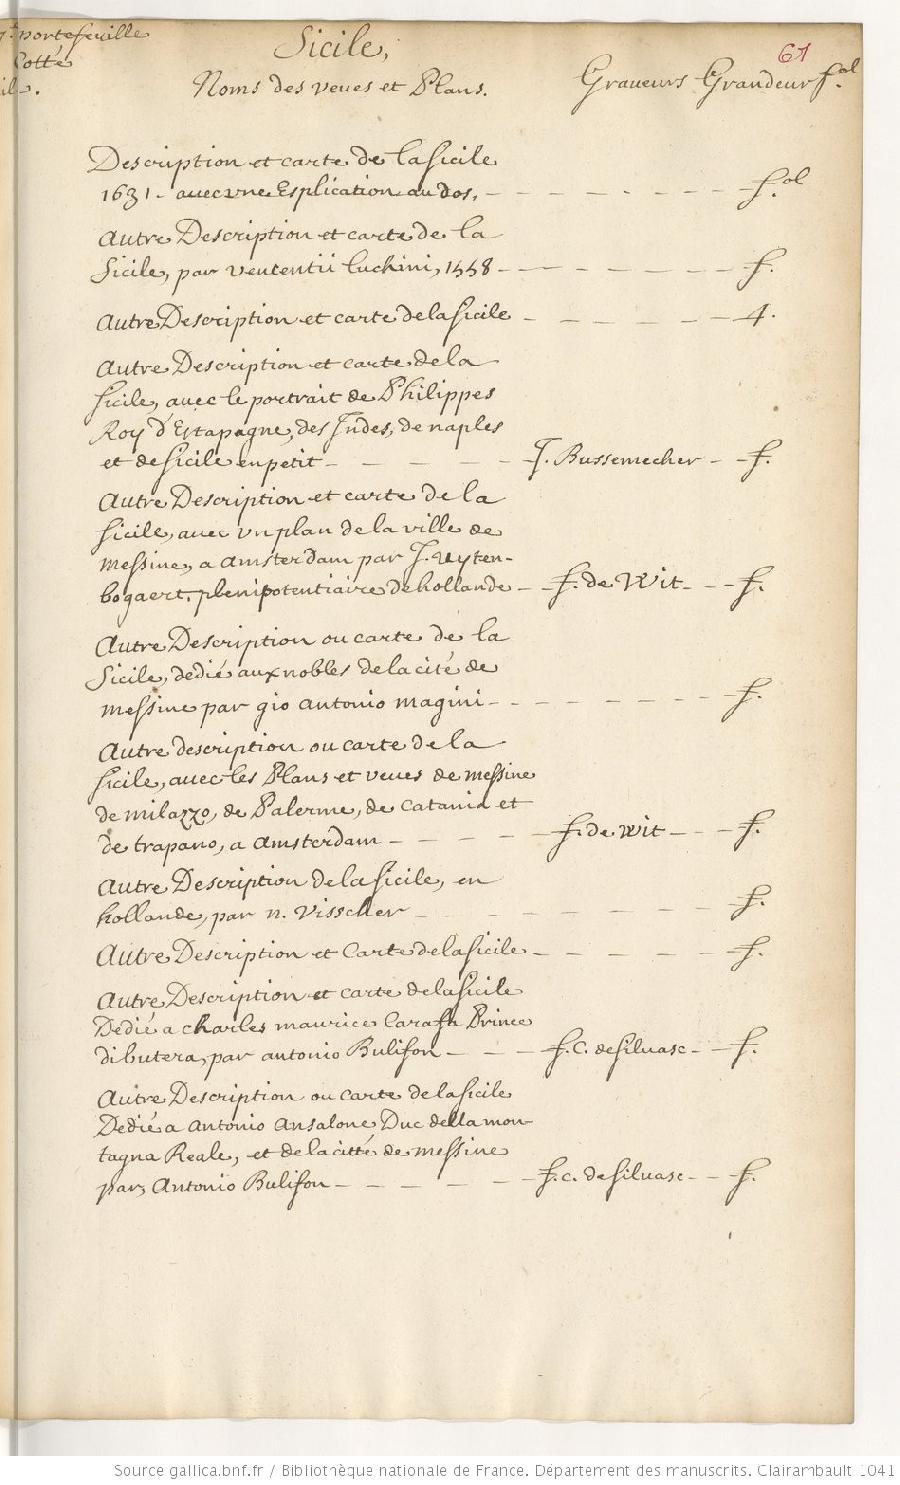 portefeuille
Cotté
Sicile,
61
Noms des veues et Plans.
Graveurs Grandeur fol.
Description et carte de la Sicile
1631 - avec une Esplication au dos, - - - - - - - - fol.
autre Description et carte de la
Sicile, par Luchini, 1558 - - - - - - - f.
autre Description et carte de la Sicile - - - - - - 4.
autre Description et carte de la
Sicile, avec le portrait de Philippes
Roy d'Espagne, des Indes, de naples
et de Sicile en petit - - - - - - J. Bussemecher - f.
autre Description et carte de la
Sicile, avec un plan de la ville de
messine, a amsterdam par J. uyten-
bogaert, plenipotentiaire de hollande - f. de Wit - - f.
autre Description ou carte de la
Sicile, dedié aux nobles de la cité de
messine par gio antonio magini - - - - - - - - f.
autre description ou carte de la
Sicile, avec les Plans et veues de messine
de milazzo, de Palerme, de Catania et
de trapano, a amsterdam - - - - - f. de wit - - f.
autre Description de la Sicile, en
hollande, par n. Visscher - - - - - - - f.
autre Description et Carte de la Sicile - - - - - - f.
autre Description et carte de la Sicile
Dedié a charles maurice Carafa Prince
di butera, par antonio Bulifon - - - f. C. de silvase - - f.
autre Description ou carte de la Sicile
Dedié a antonio ansalone Duc della mon-
tagna Reale, et de la citté de messine
par antonio Bulifon - - - - - - f. c. de silvase - - f.
Source gallica.bnf.fr / Bibliothèque nationale de France. Département des manuscrits. Clairambault 1041